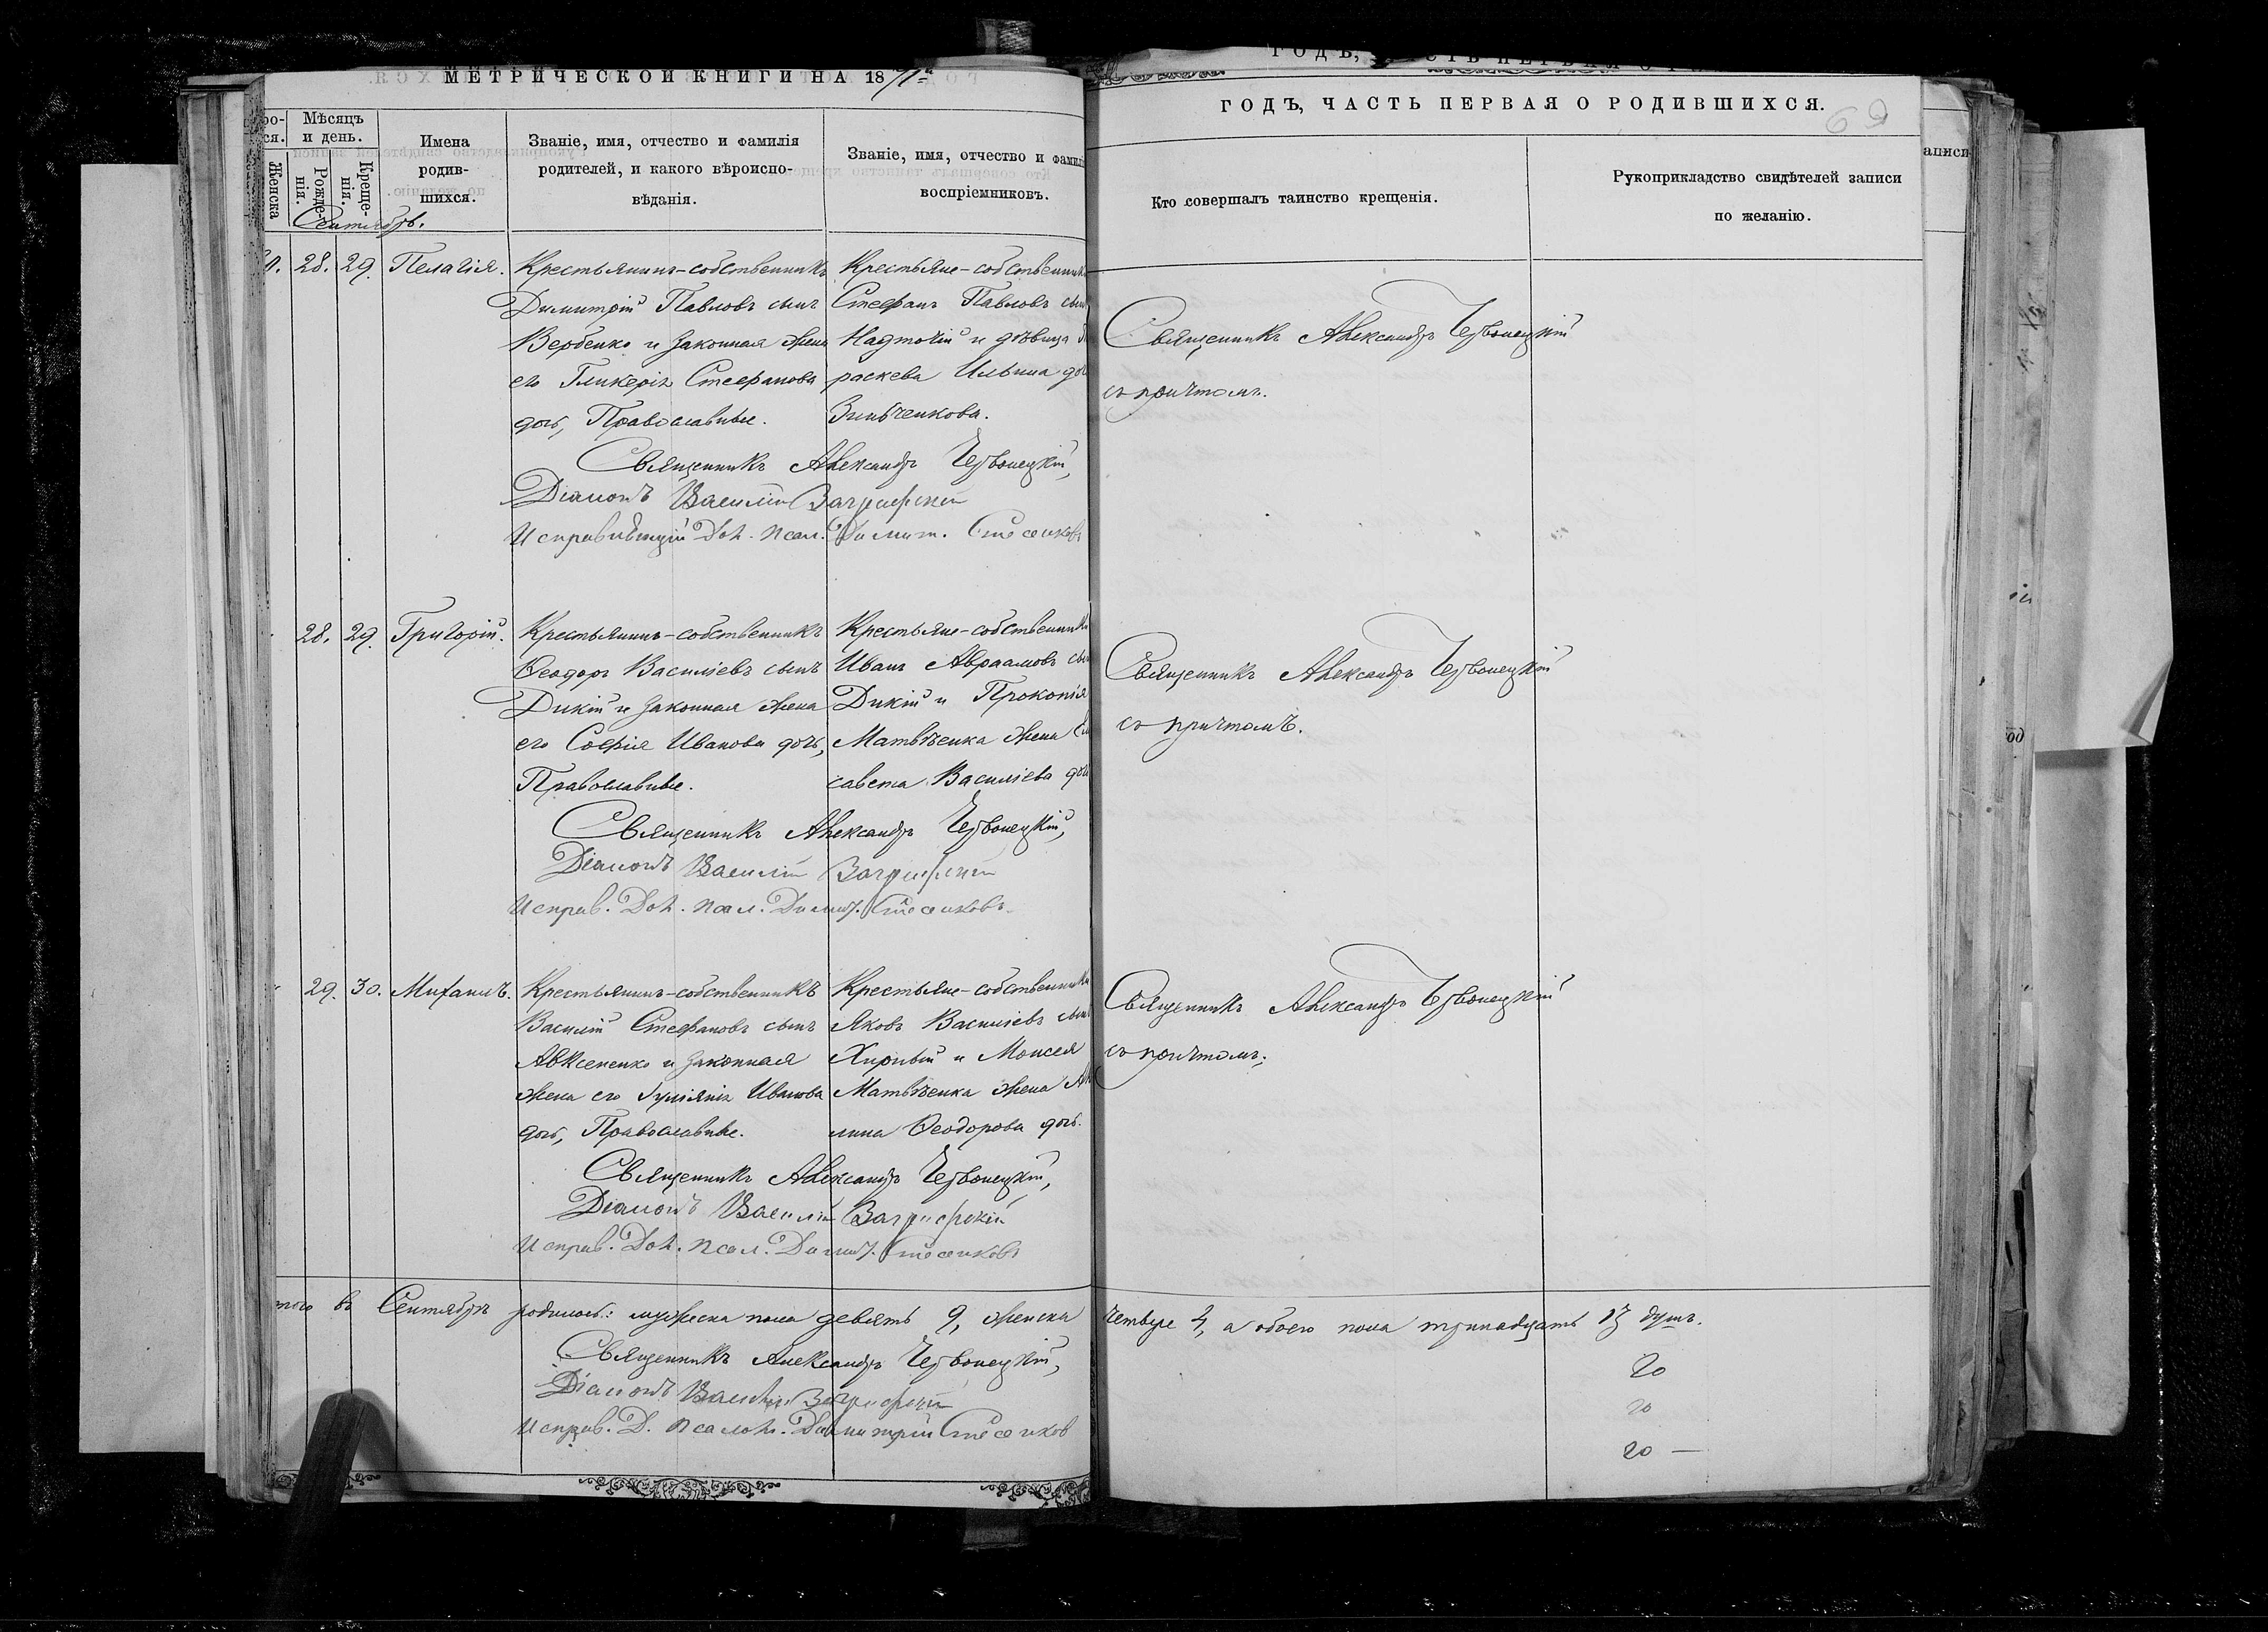 МЕТРИЧЕСКОЙ КНИГИ НА 18
ГОДЪ, ЧАСТЬ ПЕРВАЯ О РОДИВШИХСЯ.
69
Мѣсяцъ и день.
Женска
Рожде-
нія.
Креще-
нія.
Имена
родив-
шихся.
Званіе, имя, отчество и фамилія
родителей, и какого вѣроиспо-
вѣданія.
Званіе, имя, отчество и фамилі
воспріемниковъ.
Кто совершалъ таинство крещенія.
Рукоприкладство свидѣтелей записи
по желанію.
Сентябрь.
28. 29. Пелагія.
Крестьянинъ-собственникъ
Димитрій Павловъ сынъ
Вербенко и законная жена
его Гликерія Стефанова
дочь, Православные.
Крестьяне-собственники
Стефанъ Павловъ сын
Надточій и дѣвица
раскева Ильина до
Зинченкова.
Священникъ Александръ Червонецкій
съ причтомъ.
Священникъ Александръ Червонецкій,
Діаконъ Василій
Исправляющій Дол. Псал. Димит.
28. 29. Григорій.
Крестьянинъ-собственникъ
Ѳеодоръ Василіевъ сынъ
Дикій и законная жена
его Софія Иванова дочь,
Православные.
Крестьяне-собственники
Иванъ Авраамовъ сы
Дикій и Прокопія
Матвѣенка жена Ели
савета Василіева доч
Священникъ Александръ Червонецкій
съ причтомъ.
Священникъ Александръ Червонецкій,
Діаконъ Василій
Исправ. Дол. Псал. Димит.
29. 30. Михаилъ.
Крестьянинъ-собственникъ
Василій Стефановъ сынъ
Авксененко и законная
жена его Іуліанія Иванова
дочь, Православные.
Крестьяне-собственники
Яковъ Василіевъ сын
Хирный и Моисея
Матвѣенка жена Ак
лина Ѳеодорова дочь.
Священникъ Александръ Червонецкій
съ причтомъ.
Священникъ Александръ Червонецкій,
Діаконъ Василій
Исправ. Дол. Псал. Димит.
того въ Сентябрѣ родилось: мужеска пола девять 9, женска четыре 4, а обоего пола тринадцать 13 душъ.
Священникъ Александръ Червонецкій,
Діаконъ Василій
Исправ. Д. Псалом. Димитрій
20
20
20 —